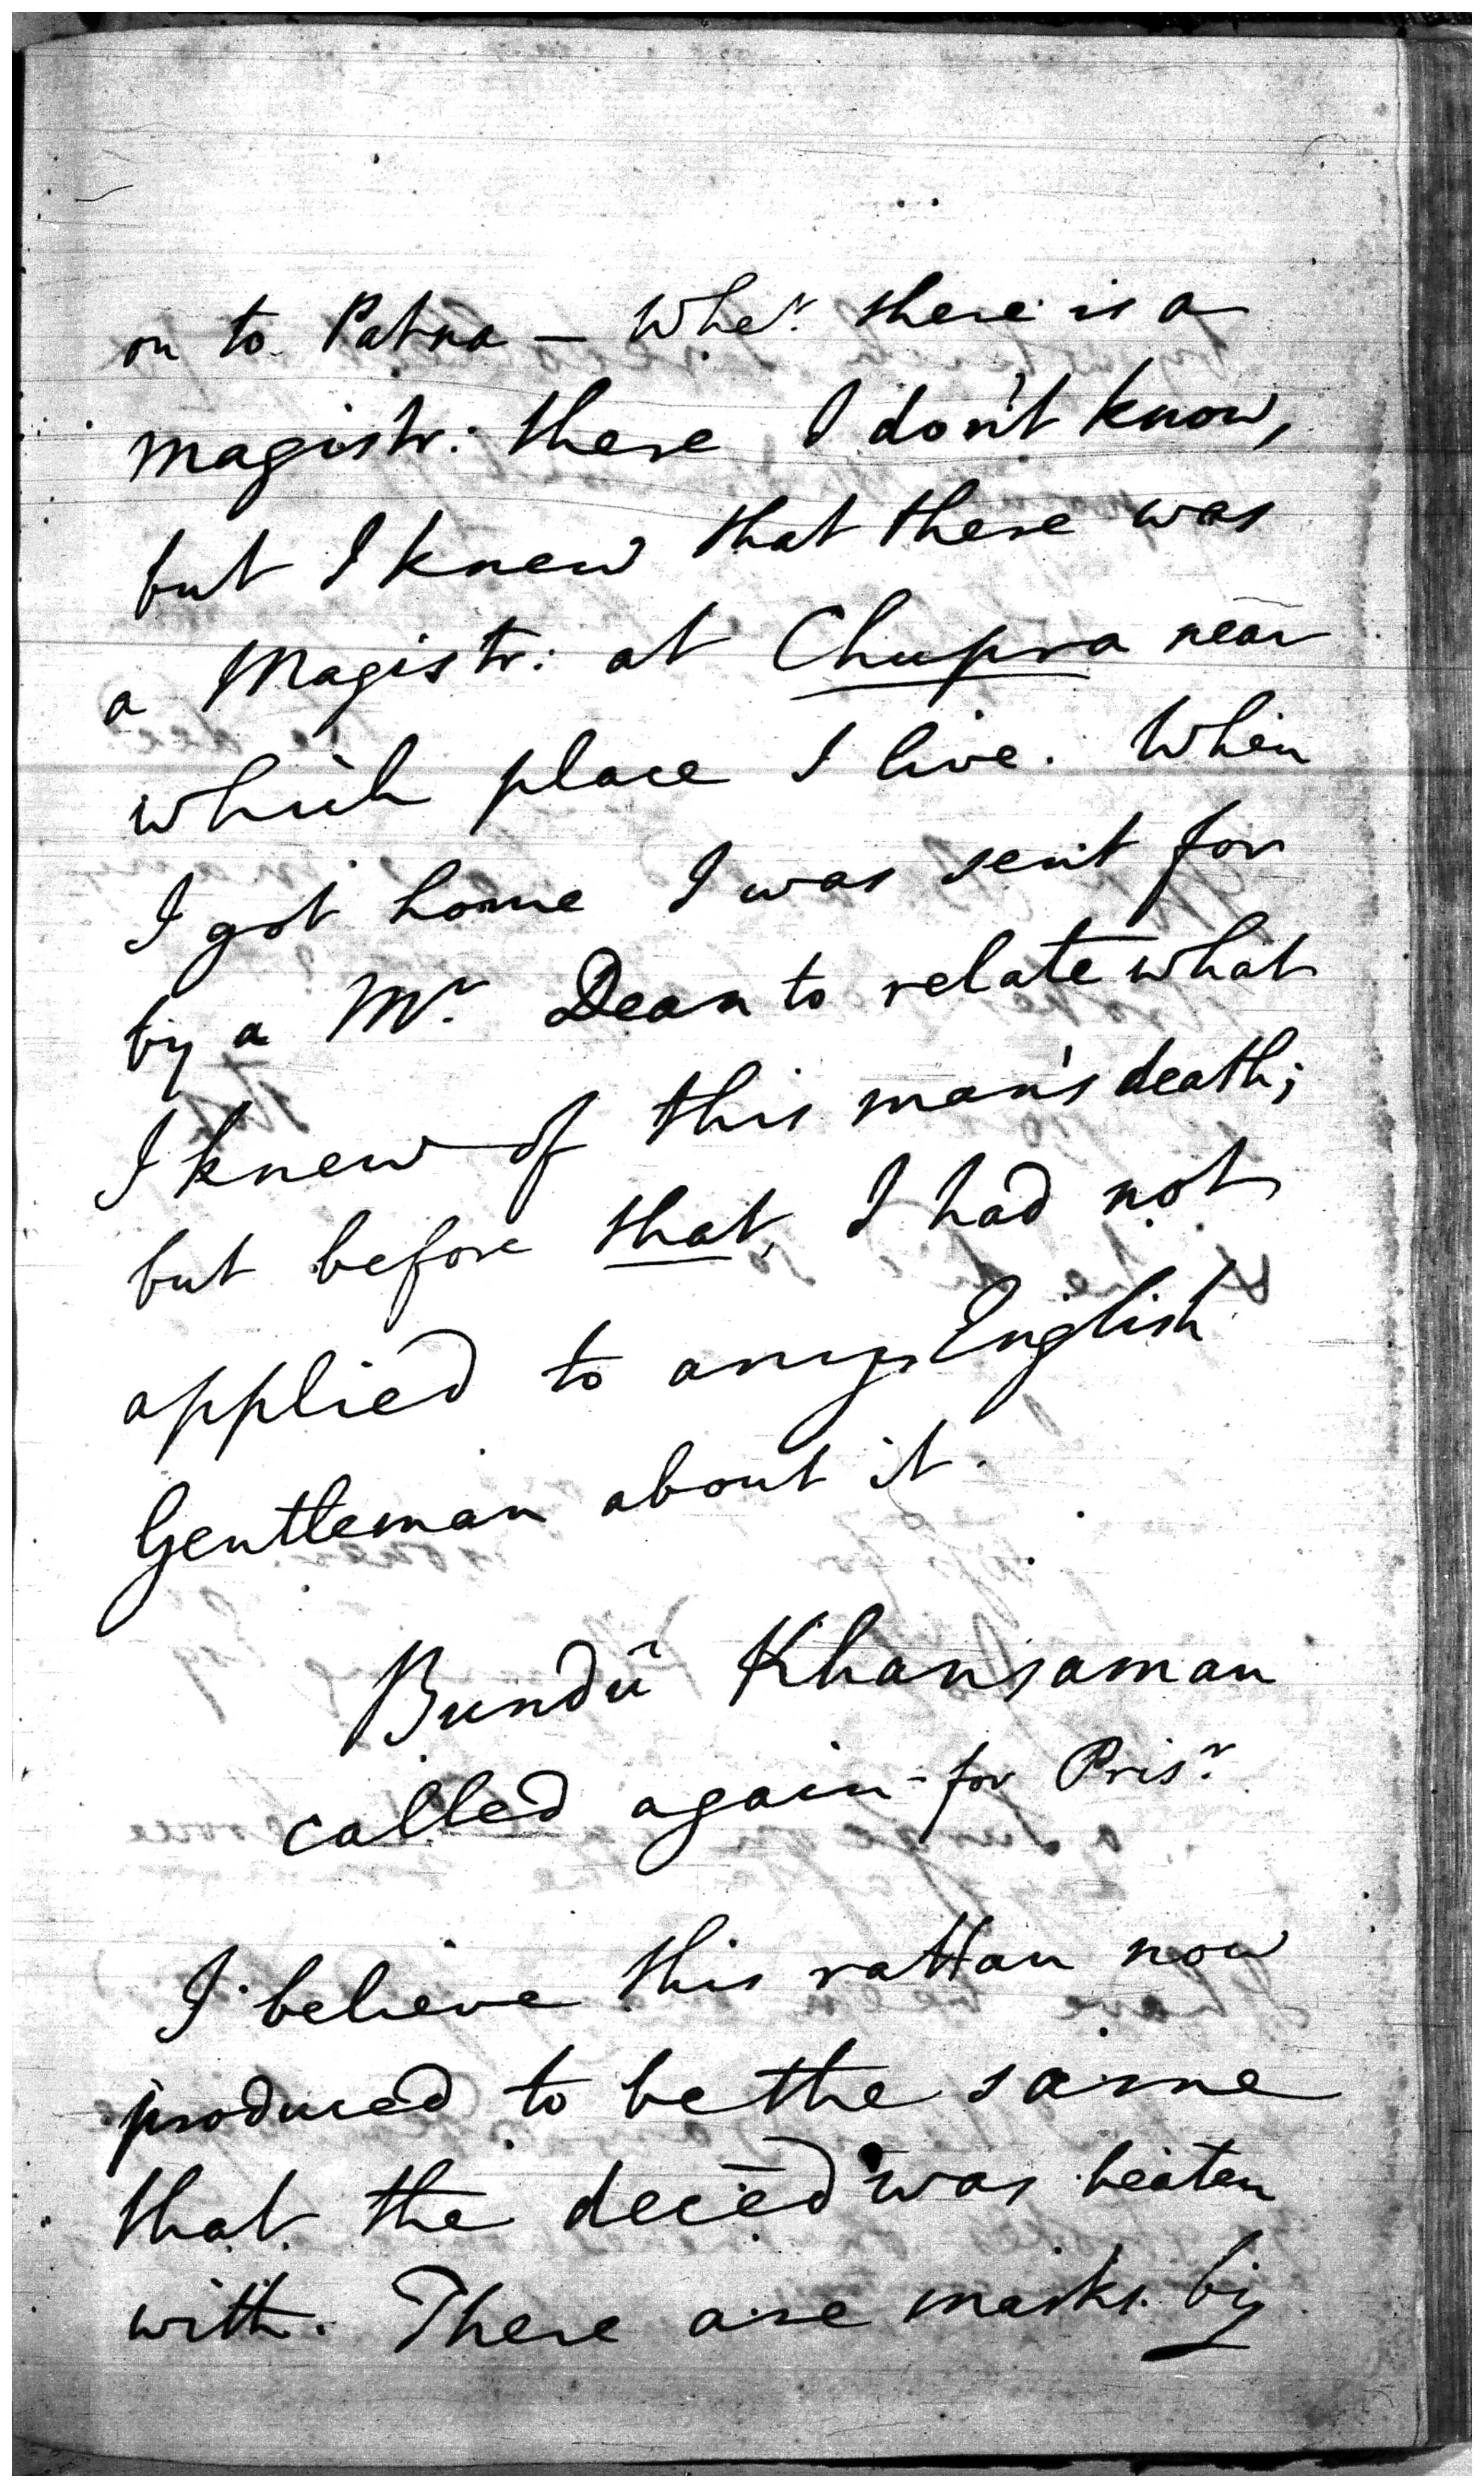 on to Patna — Whe.r there is a
magistr: there I don't know,
but I knew that there was
a Magistr: at Chupra near
which place I live. When
I got home I was sent for
by a Mr. Dean to relate what
I knew of this man's death;
but before that, I had not
applied to any English
Gentleman about it.
Bundū Khansaman
called again for Pris.r
I believe this rattan now
produced to be the same
that the decēd was beaten
with. There are marks by